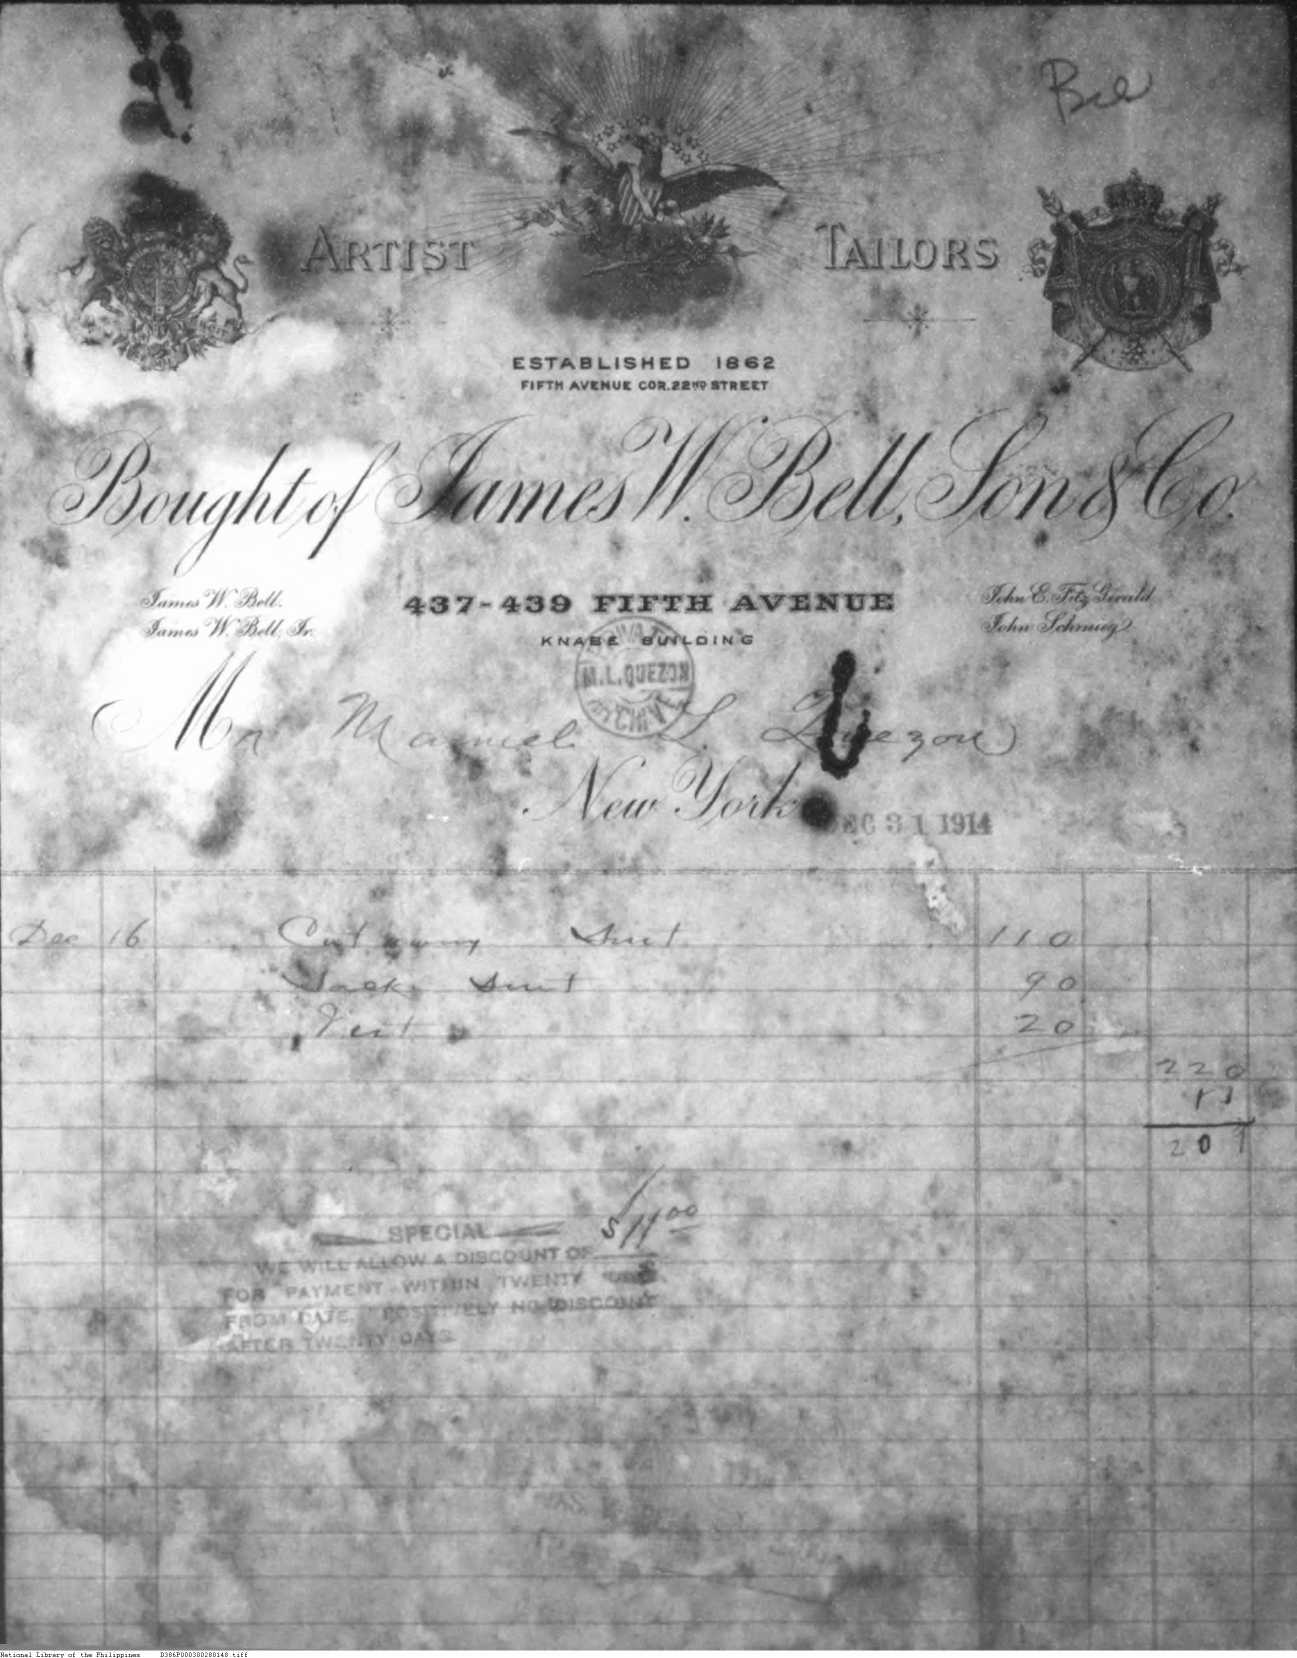 Bill
ARTIST TAILORS
ESTABLISHED 1862
FIFTH AVENUE COR. 22ND STREET
Bought of James W. Bell, Son & Co.
James W. Bell.
James W. Bell, Jr.
437-439 FIFTH AVENUE
KNABE BUILDING
John E. Fitz Gerald
John Schmieg
M.L.QUEZON
Mr Manuel L. Quezon
New York DEC 31 1914
Dec 16 Cutaway Suit 110
Sack Suit 90
Vest 20
220
11
209
SPECIAL $11 00
WE WILL ALLOW A DISCOUNT OF
FOR PAYMENT WITHIN TWENTY DAYS
FROM DATE. POSITIVELY NO DISCOUNT
AFTER TWENTY DAYS
National Library of the Philippines D386P000300280148.tiff